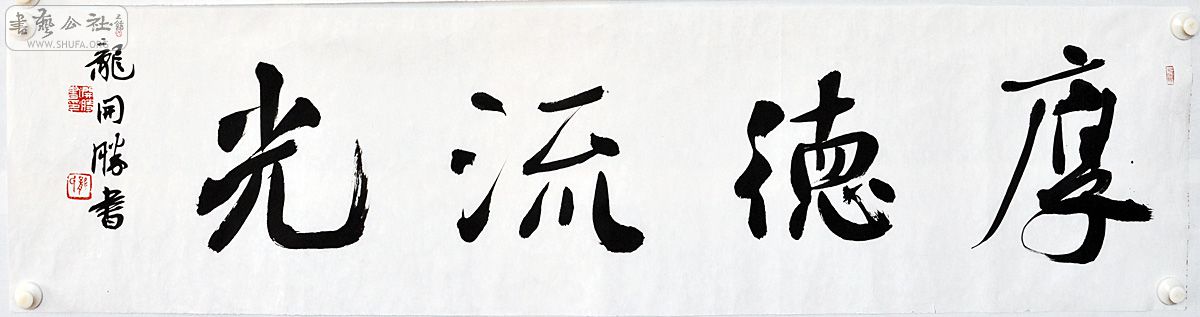 厚德流光
龍開勝書
書藝公社
WWW.SHUFA.ORG